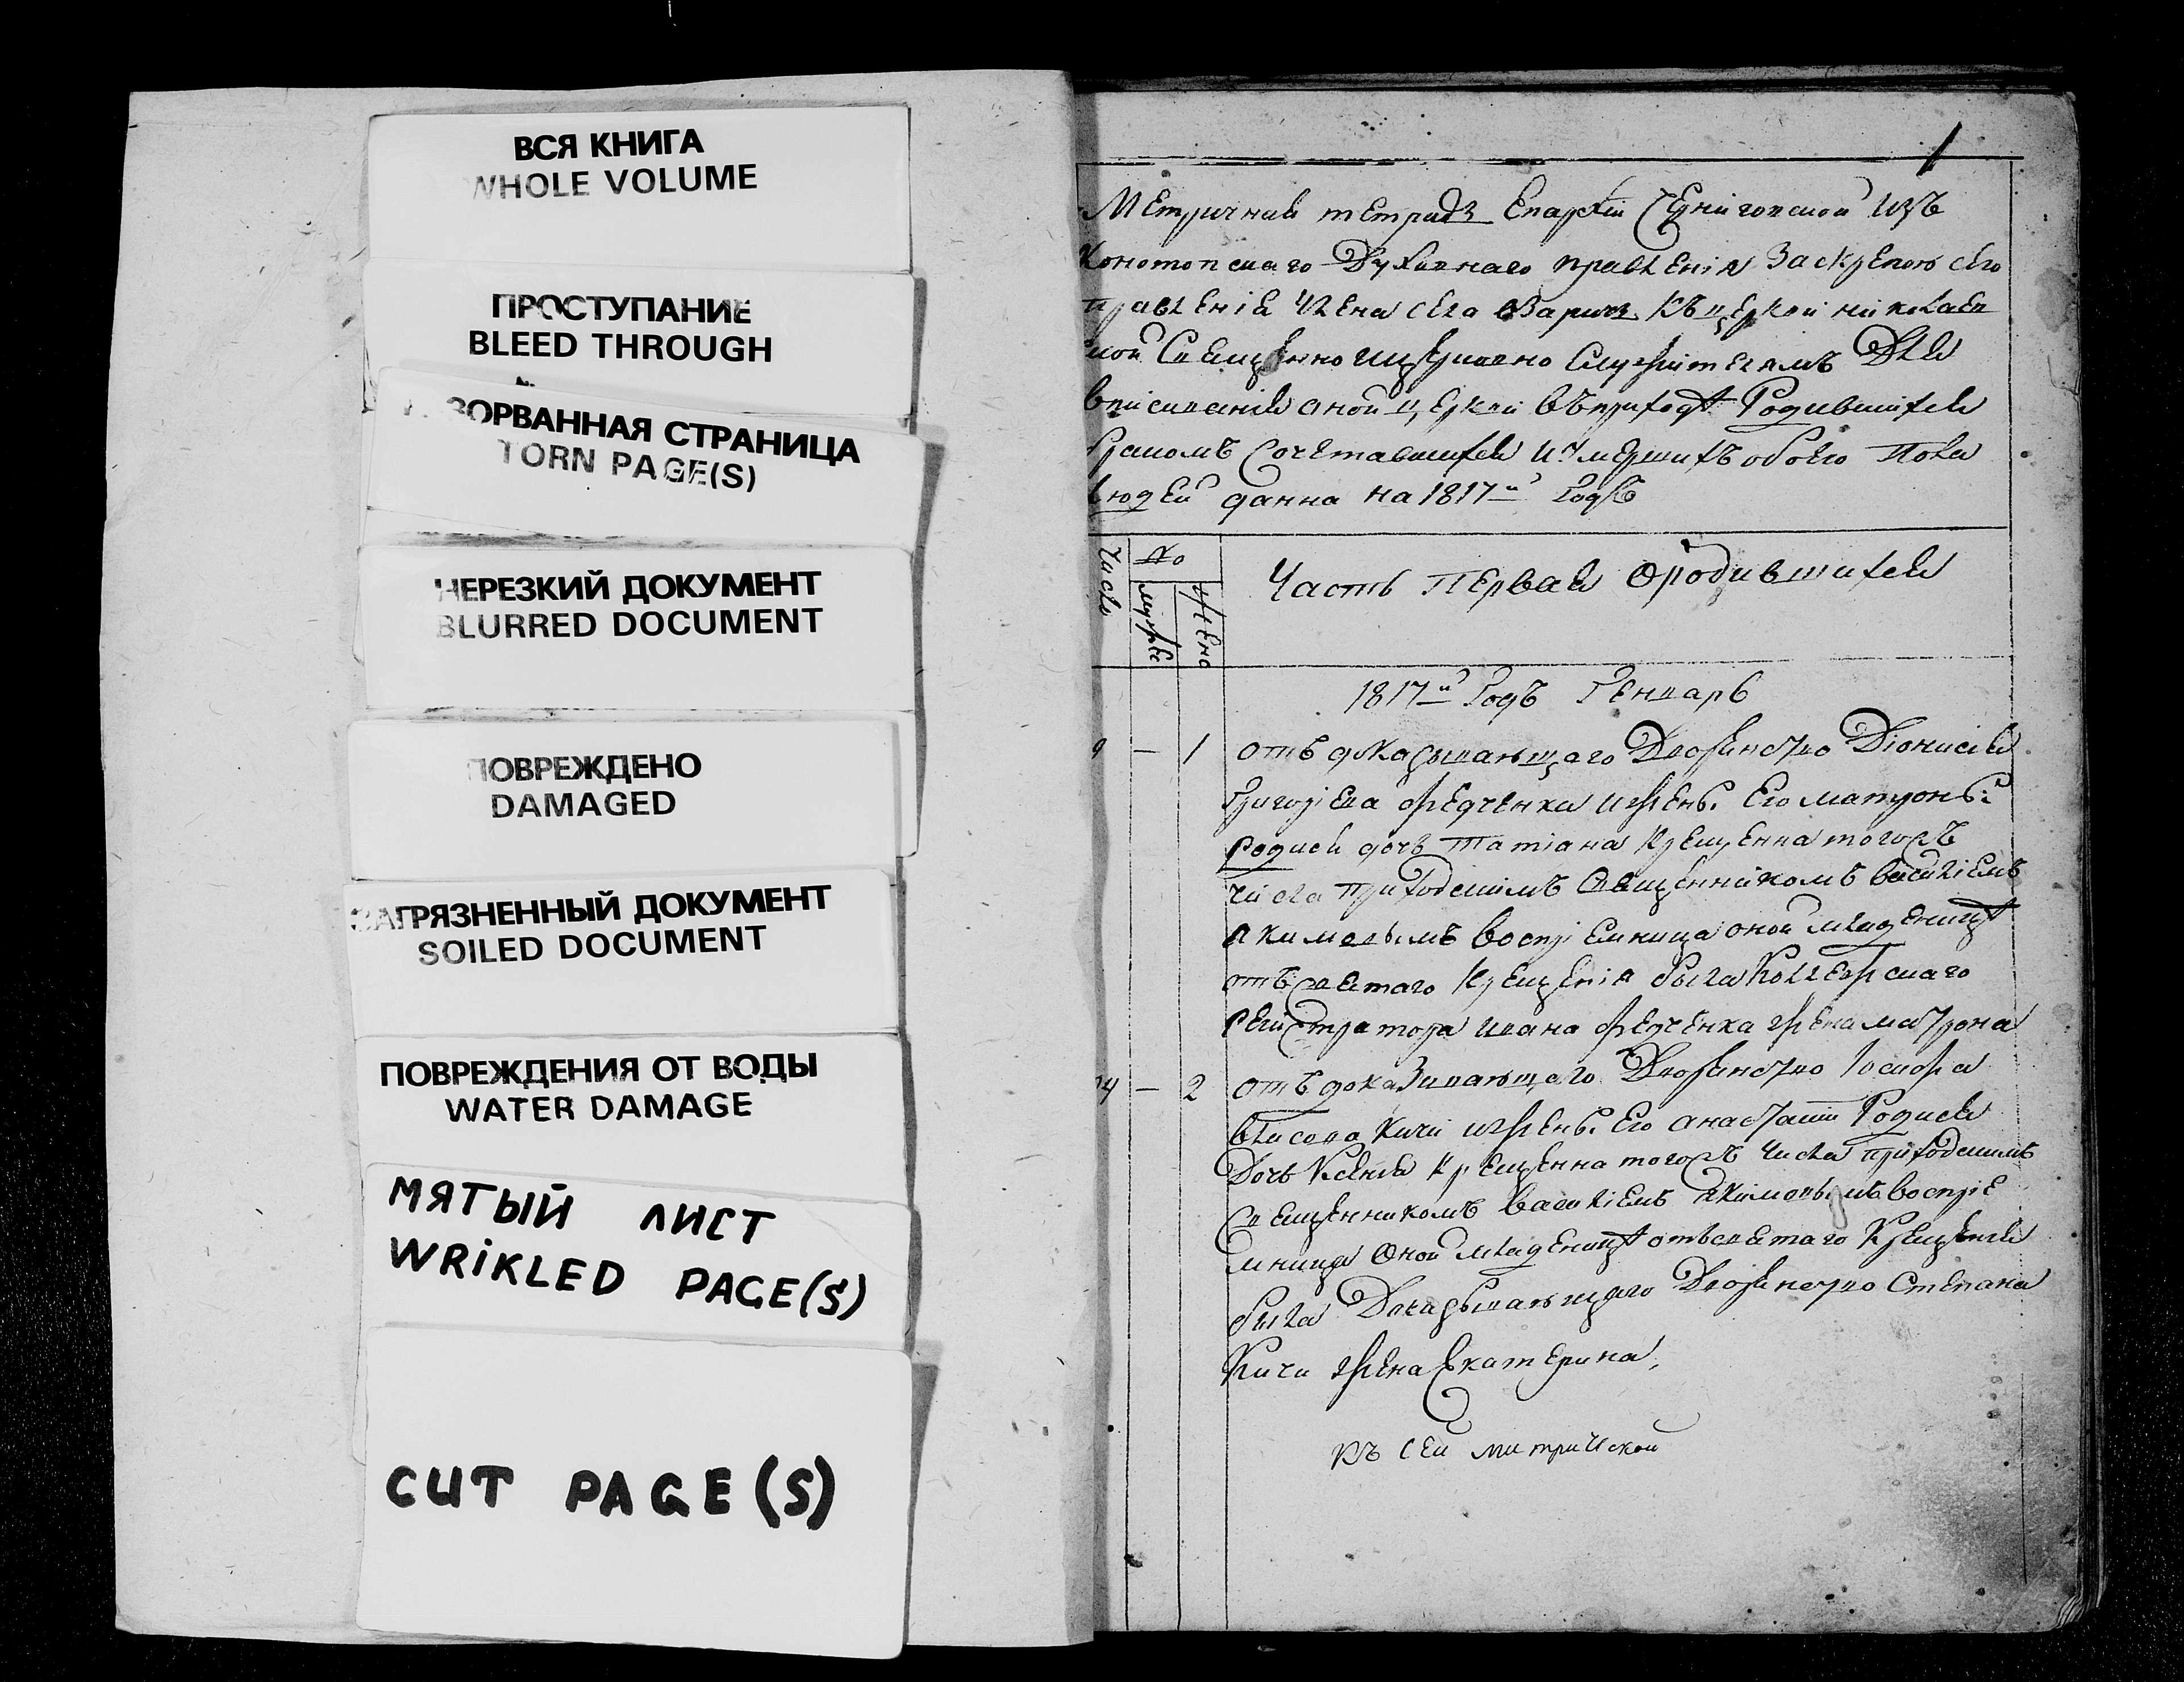 ВСЯ КНИГА
WHOLE VOLUME
ПРОСТУПАНИЕ
BLEED THROUGH
ЗОРВАННАЯ СТРАНИЦА
TORN PAGE(S)
НЕРЕЗКИЙ ДОКУМЕНТ
BLURRED DOCUMENT
ПОВРЕЖДЕНО
DAMAGED
ЗАГРЯЗНЕННЫЙ ДОКУМЕНТ
SOILED DOCUMENT
ПОВРЕЖДЕНИЯ ОТ ВОДЫ
WATER DAMAGE
МЯТЫЙ ЛИСТ
WRiKLED PAGE(S)
CUT PAGE(S)
1
Метричная тетрадъ Епархіи Чернѣговской изъ
Конотопскаго Духовнаго правленія Заскрепою сего
правленія Члена села къ церкви николаев
ской Священно церковно Служителямъ Для
вписиванія оной церкви въ приходѣ Родившихся
бракомъ Сочетавшихся и умершихъ обоего пола
людей данна на 1817й Годъ
Число № мужес жено Часть первая ородившихся
1817й Годъ Генварь
9 — 1 отъ доказывающаго Дворянство Діонисія
Григоріева Федченка и жены Его матроны
родися дочь Татіана крещенна тогожъ
числа приходскимъ Священникомъ василіемъ
Якимовымъ воспріемница оной младеницѣ
отъ святаго крещенія была Коллежскаго
регистратора ивана федченка жена матрона
24 — 2 отъ доказивающаго Дворянство
Власова Кичи и жены Его анастасіи Родися
Дочь Ксенія крещенна тогожъ числа приходскимъ
Священникомъ василіемъ якимовымъ воспріе
мница Оной младеницѣ отъ святаго Крещенія
была Доказывающаго Дворянство Степана
Кичи жена Екатерина
къ сей митрической